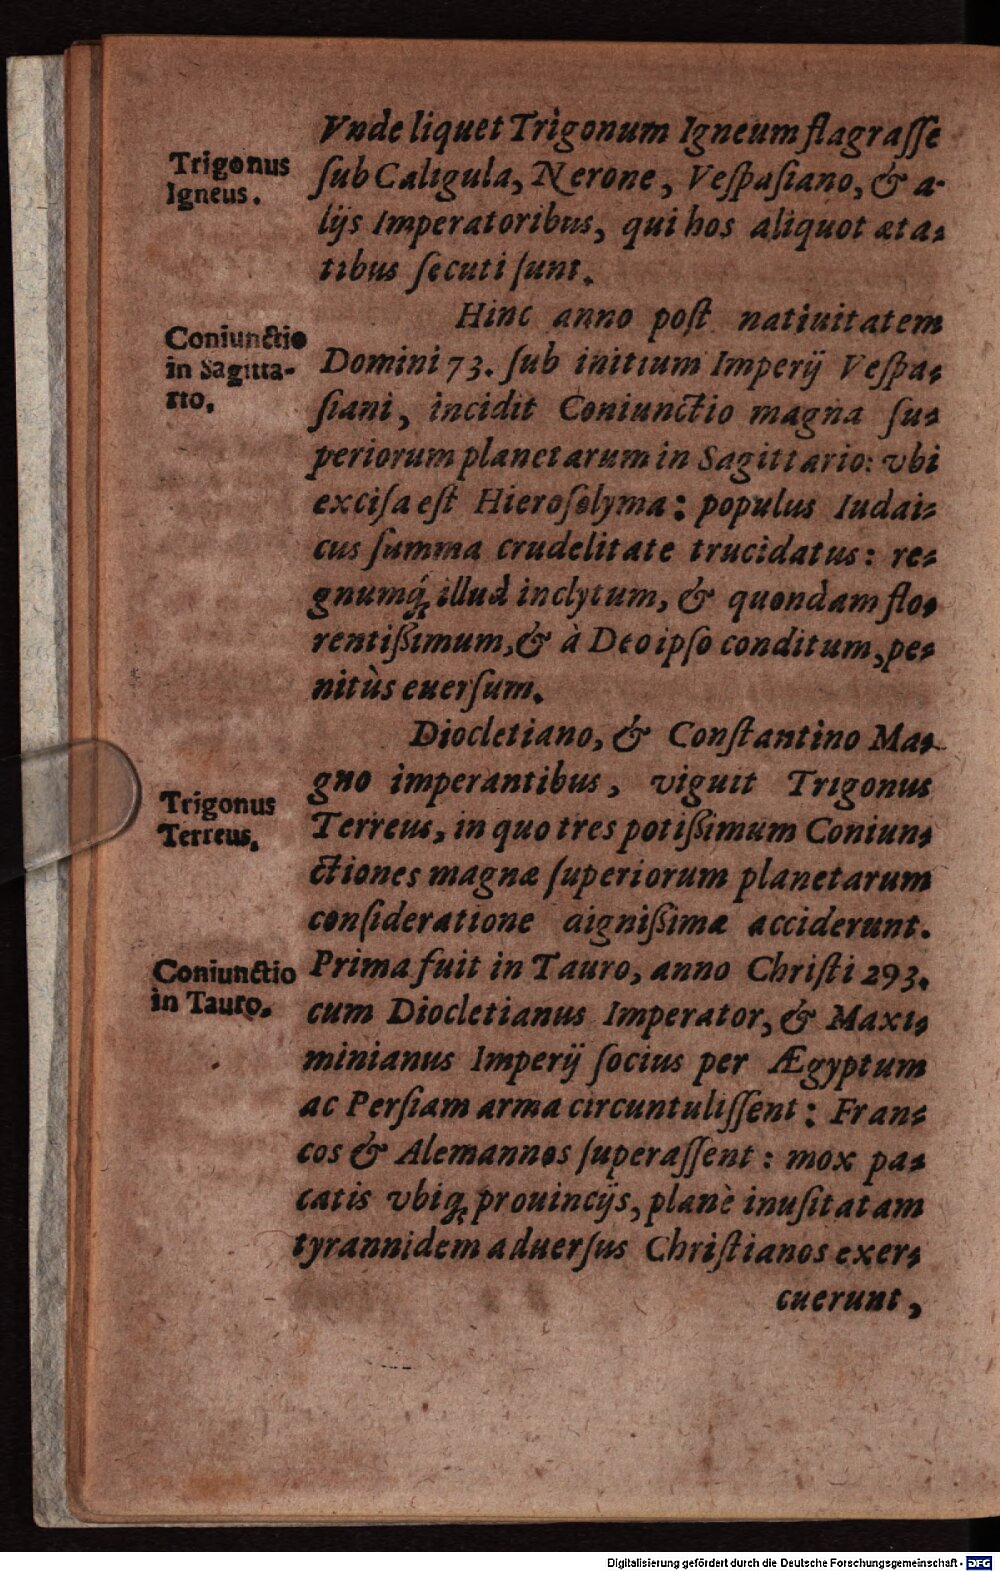 Vnde liquet Trigonum Igneum flagraſſe
Trigonus
Igneus.
ſub Caligula, Nerone, Veſpaſiano, & a-
lijs Imperatoribus, qui hos aliquot æta-
tibus ſecuti ſunt.
Hinc anno poſt natiuitatem
Coniunctio
in Sagitta-
rio.
Domini 73. ſub initium Imperij Veſpa-
ſiani, incidit Coniunctio magna ſu-
periorum planetarum in Sagittario: vbi
exciſa eſt Hieroſolyma: populus Iudai-
cus ſumma crudelitate trucidatus: re-
gnumq́ꝫ illud inclytum, & quondam flo-
rentißimum, & à Deo ipſo conditum, pe-
nitùs euerſum.
Diocletiano, & Conſtantino Ma-
gno imperantibus, viguit Trigonus
Trigonus
Terreus.
Terreus, in quo tres potißimum Coniun-
ctiones magnæ ſuperiorum planetarum
conſideratione dignißimæ acciderunt.
Coniunctio
in Tauro.
Prima fuit in Tauro, anno Chriſti 293.
cum Diocletianus Imperator, & Maxi-
minianus Imperij ſocius per Ægyptum
ac Perſiam arma circuntuliſſent: Fran-
cos & Alemannos ſuperaſſent: mox pa-
catis vbiqꝫ prouincijs, planè inuſitatam
tyrannidem aduerſus Chriſtianos exer-
cuerunt,
Digitalisierung gefördert durch die Deutsche Forschungsgemeinschaft - DFG